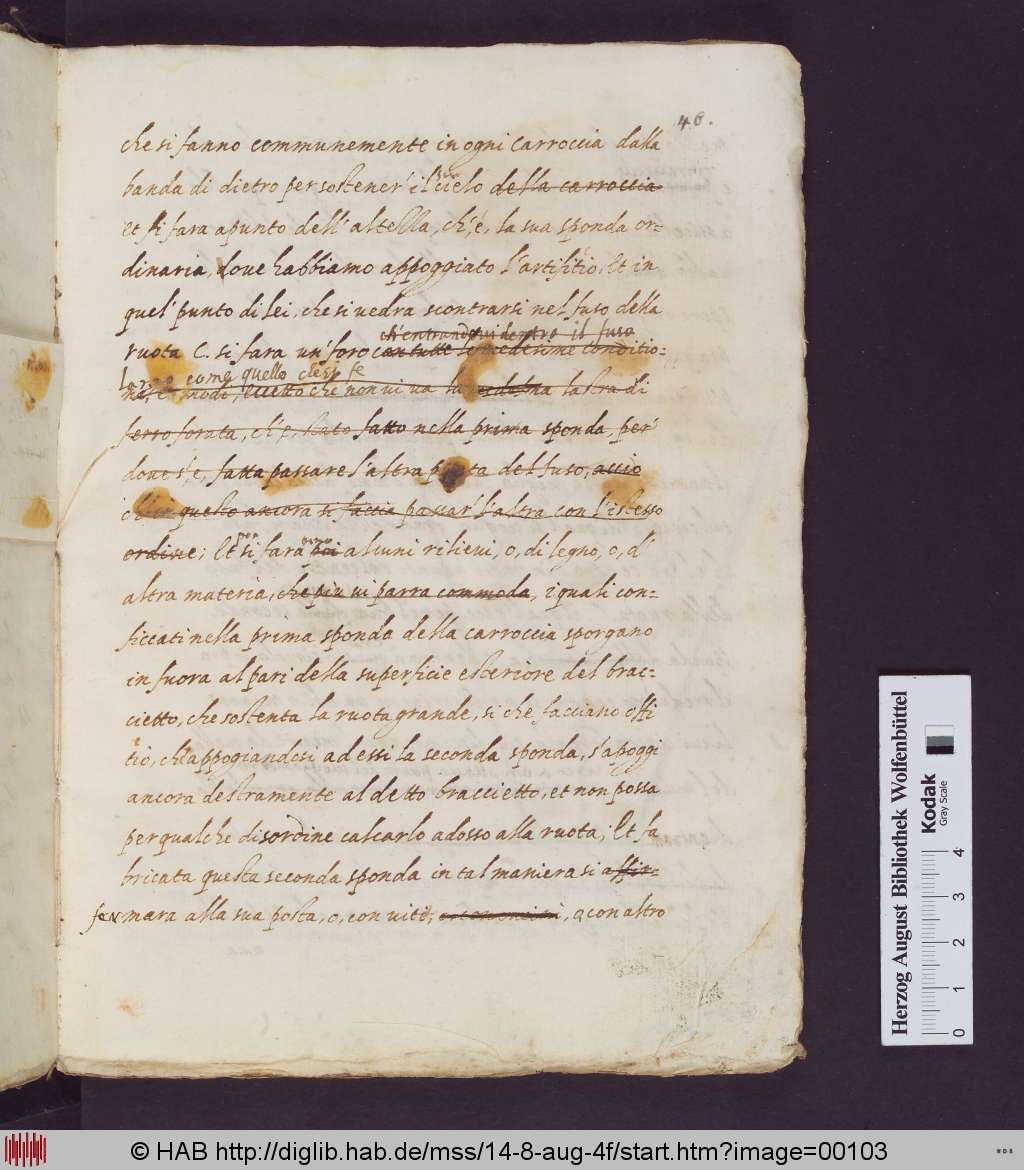 46.
che si fanno communemente in ogni carroccia dalla
banda di dietro per sostener' il cielo della carroccia
et si fara apunto dell' altella, ch'é, la sua sponda or=
dinaria, dove habbiamo appoggiato l'artifitio, et in
quel' punto di lei, che si vedra scontrarsi nel fuso della
ch'entrando qui dentro il fuso
ruota C. si fara un' foro con tutte le medesime conditio=
largo come quello che si fe
ni, e modi, eccetto che non vi va la medesima lastra di
ferro forata, ch'è stato fatto nella prima sponda, per'
dove s'è, fatta passare l'altra p ta del fuso, accio
questo ancora si faccia passar' l'altra con l'istesso
ordine; et si fara poi alcuni rilievi, o, di legno, o, d'
altra materia, che piu vi parra commoda, i quali con=
ficcati nella prima sponda della carroccia sporgano
in fuora al pari della superficie esteriore del brac=
cietto, che sostenta la ruota grande, si che facciano offi
tio, ch'appogiandosi ad essi la seconda sponda, s'apoggi
ancora destramente al detto braccietto, et non possa
per qualche disordine calcarlo adosso alla ruota; et fa
bricata questa seconda sponda in tal maniera si affir=
fermara alla sua posta, o, con viti, o con altro
Herzog August Bibliothek Wolfenbüttel
Kodak
Gray Scale
0 1 2 3 4
© HAB http://diglib.hab.de/mss/14-8-aug-4f/start.htm?image=00103